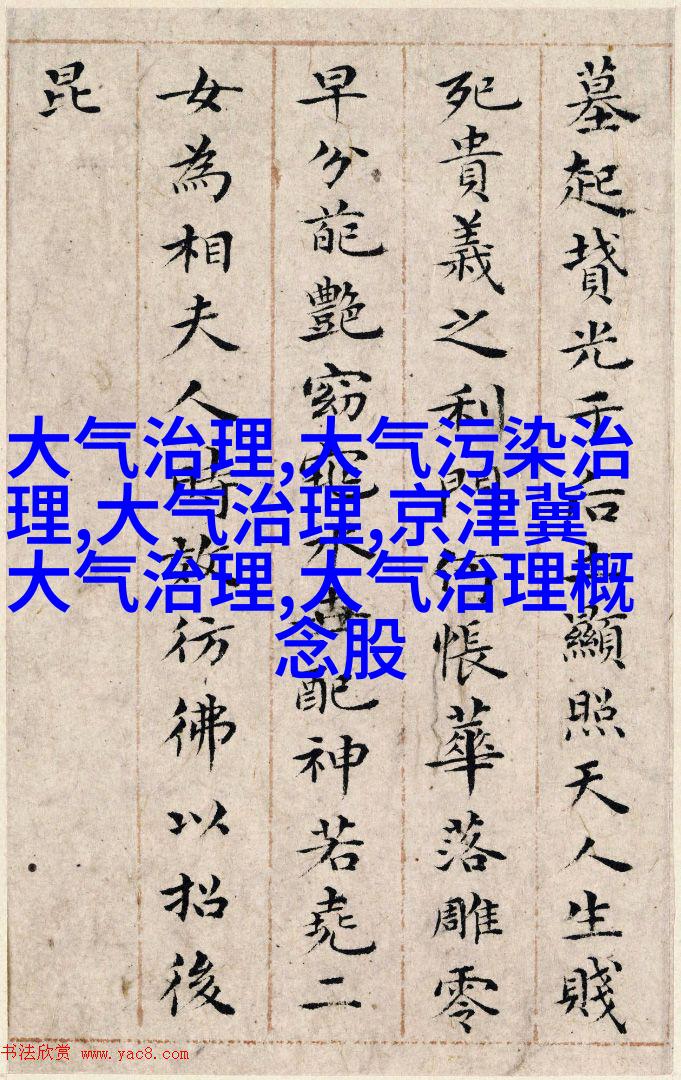 墓起墳光于后顯照天人生賤
死貴義之利門何悵華落雕零
早分葩艷窈窕永世配神若堯二
女為相夫人時效彷彿以招後
昆
大气治理,大气污染治
理,大气治理,京津冀
大气治理,大气治理概
念股
书法欣赏 www.yac8.com